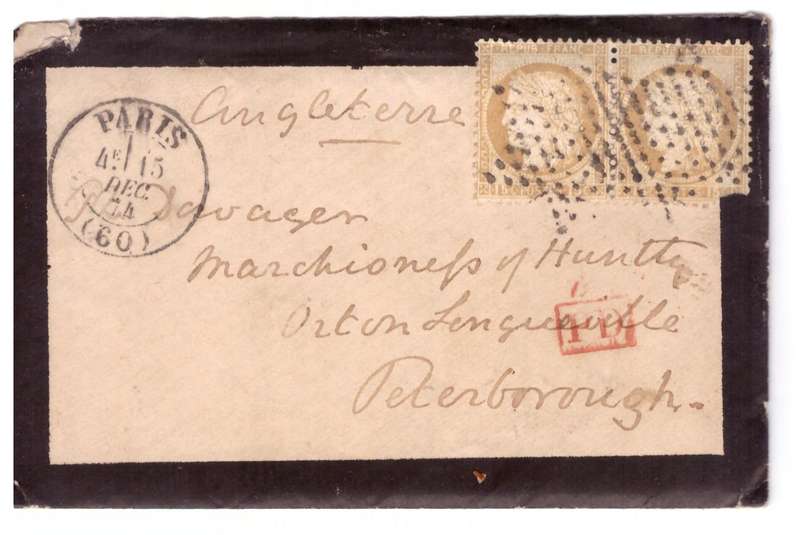 REPUB FRANC REPUB FRANC
15 15
Angleterre
PARIS
4E 15
DEC.
74
(60)
Dowager
Marchioneſs of Huntly
Orton Longueville
PD
Peterborough.